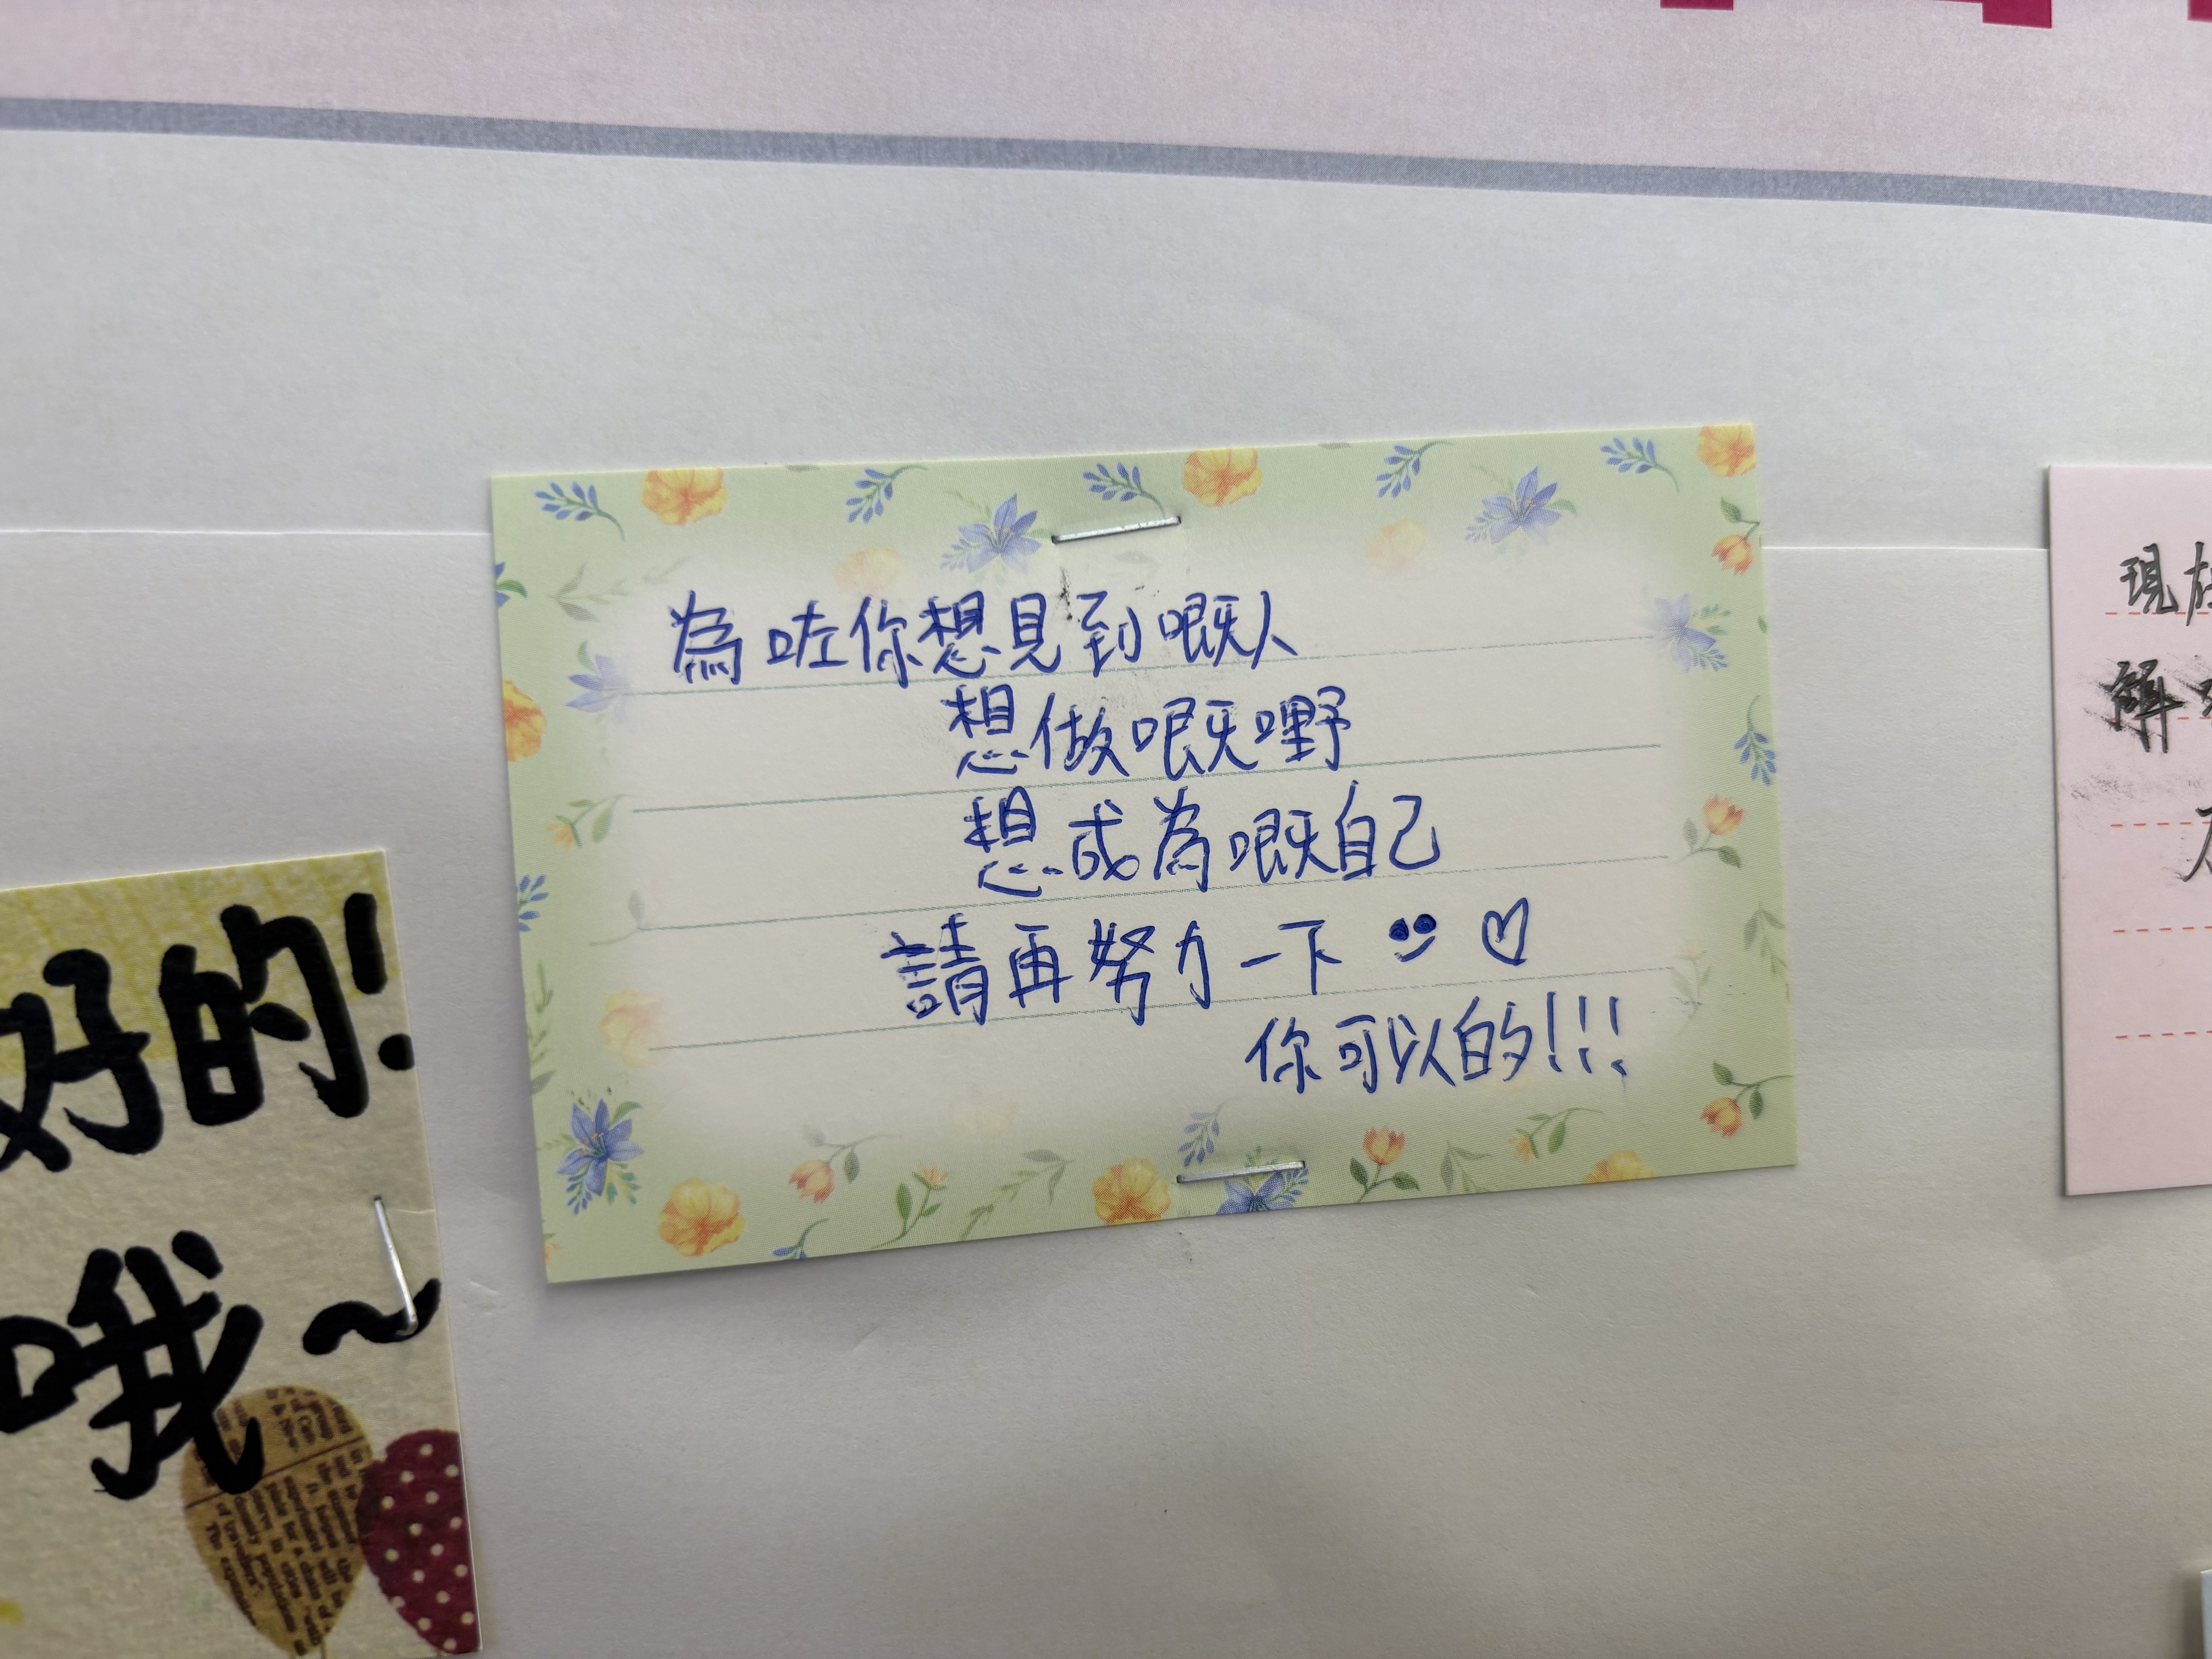 為咗你想見到嘅人
想做嘅嘢
想成為嘅自己
請再努力一下
你可以的!!!
好的!
哦~
現
解